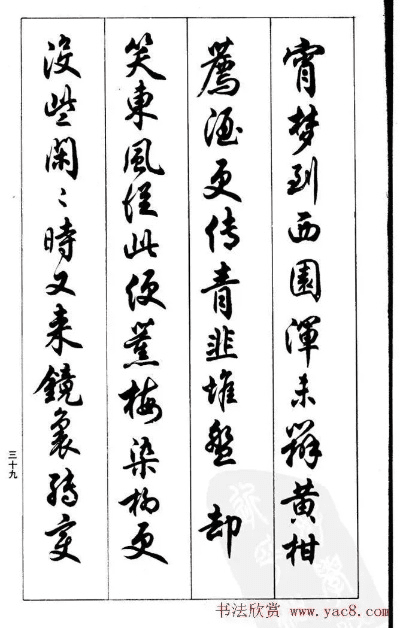 宵梦到西園渾未辦黄柑
薦酒更传青韭堆盤却
笑東風從此便薰梅染柳更
没些閑〻時又来鏡裏轉变
三十九
书法欣赏www.yac8.com